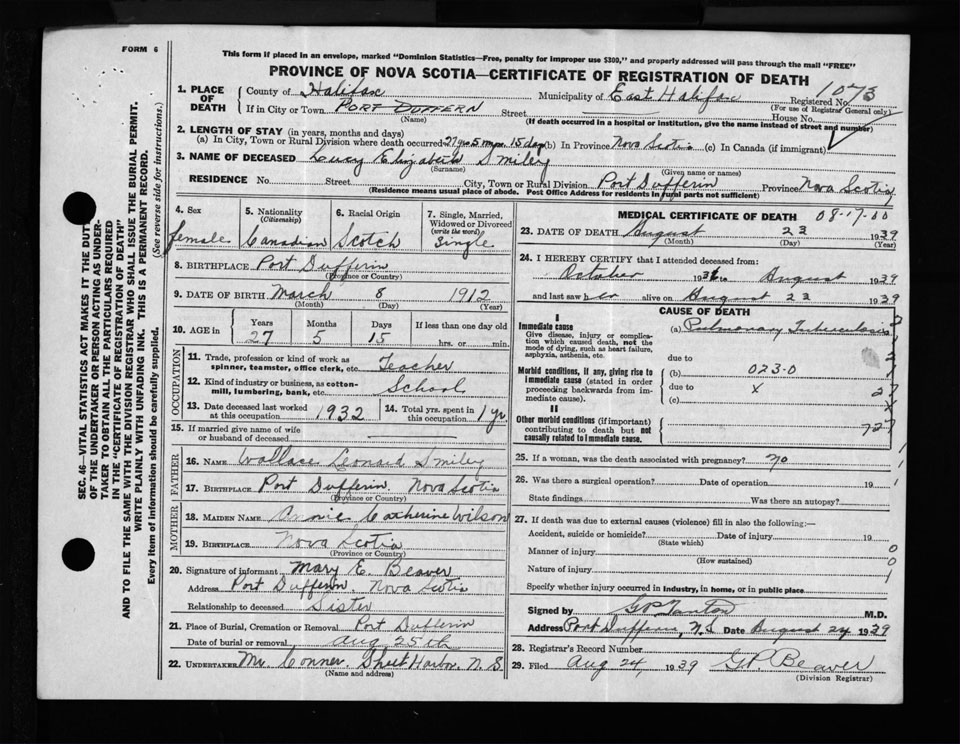 FORM 6
This form if placed in an envelope, marked "Dominion Statistics—Free, penalty for improper use $300," and properly addressed will pass through the mail "FREE"
PROVINCE OF NOVA SCOTIA—CERTIFICATE OF REGISTRATION OF DEATH
1073
1. PLACE OF DEATH County of Halifax Municipality of East Halifax Registered No.
(For use of Registrar General only)
If in City or Town PORT DUFFERN Street House No.
(Name) (If death occurred in a hospital or institution, give the name instead of street and number)
2. LENGTH OF STAY (in years, months and days)
(a) In City, Town or Rural Division where death occurred 27 yrs 5 mos. 15 days (b) In Province Nova Scotia (c) In Canada (if immigrant)
3. NAME OF DECEASED Lucy Elizabeth Smiley
(Surname) (Given name or names)
RESIDENCE No. Street City, Town or Rural Division Port Dufferin Province Nova Scotia
(Residence means usual place of abode. Post Office Address for residents in rural parts not sufficient)
4. Sex female
5. Nationality (Citizenship) Canadian
6. Racial Origin Scotch
7. Single, Married, Widowed or Divorced (write the word) Single
8. BIRTHPLACE Port Dufferin
(Province or Country)
9. DATE OF BIRTH March 8 1912
(Month) (Day) (Year)
10. AGE in Years 27 Months 5 Days 15 If less than one day old hrs. or min.
OCCUPATION
11. Trade, profession or kind of work as spinner, teamster, office clerk, etc. Teacher
12. Kind of industry or business, as cotton-mill, lumbering, bank, etc. School
13. Date deceased last worked at this occupation 1932
14. Total yrs. spent in this occupation 1 yr.
15. If married give name of wife or husband of deceased
FATHER
16. NAME Wallace Leonard Smiley
17. BIRTHPLACE Port Dufferin. Nova Scotia
(Province or Country)
MOTHER
18. MAIDEN NAME Annie Catherine Wilson
19. BIRTHPLACE Nova Scotia
(Province or Country)
20. Signature of informant Mary E. Beaver
Address Port Dufferin, Nova Scotia
Relationship to deceased Sister
21. Place of Burial, Cremation or Removal Port Dufferin
Date of burial or removal Aug 25th
22. UNDERTAKER Mr Conner, Sheet Harbor, N. S.
(Name and address)
MEDICAL CERTIFICATE OF DEATH 08-17-00
23. DATE OF DEATH August 23 1939
(Month) (Day) (Year)
24. I HEREBY CERTIFY that I attended deceased from:
October 193 to August 1939
and last saw her alive on August 23 1939
CAUSE OF DEATH
I
Immediate cause
Give disease, injury or complication which caused death, not the mode of dying, such as heart failure, asphyxia, asthenia, etc.
(a) Pulmonary Tuberculosis
due to
Morbid conditions, if any, giving rise to immediate cause (stated in order proceeding backwards from immediate cause).
(b) 023-0
due to x
(c)
II
Other morbid conditions (if important) contributing to death but not causally related to immediate cause.
25. If a woman, was the death associated with pregnancy? no
26. Was there a surgical operation? Date of operation 19
State findings Was there an autopsy?
27. If death was due to external causes (violence) fill in also the following:—
Accident, suicide or homicide? Date of injury 19
(State which)
Manner of injury
(How sustained)
Nature of injury
Specify whether injury occurred in Industry, in home, or in public place
Signed by M.D.
Address Port Dufferin, N.S Date August 24 1939
28. Registrar's Record Number
29. Filed Aug 24, 1939 G.P. Beaver
(Division Registrar)
SEC. 46—VITAL STATISTICS ACT MAKES IT THE DUTY
OF THE UNDERTAKER OR PERSON ACTING AS UNDERTAKER TO OBTAIN ALL THE PARTICULARS REQUIRED
IN THE "CERTIFICATE OF REGISTRATION OF DEATH"
AND TO FILE THE SAME WITH THE DIVISION REGISTRAR WHO SHALL ISSUE THE BURIAL PERMIT.
WRITE PLAINLY WITH UNFADING INK. THIS IS A PERMANENT RECORD.
Every item of information should be carefully supplied. (See reverse side for instructions.)